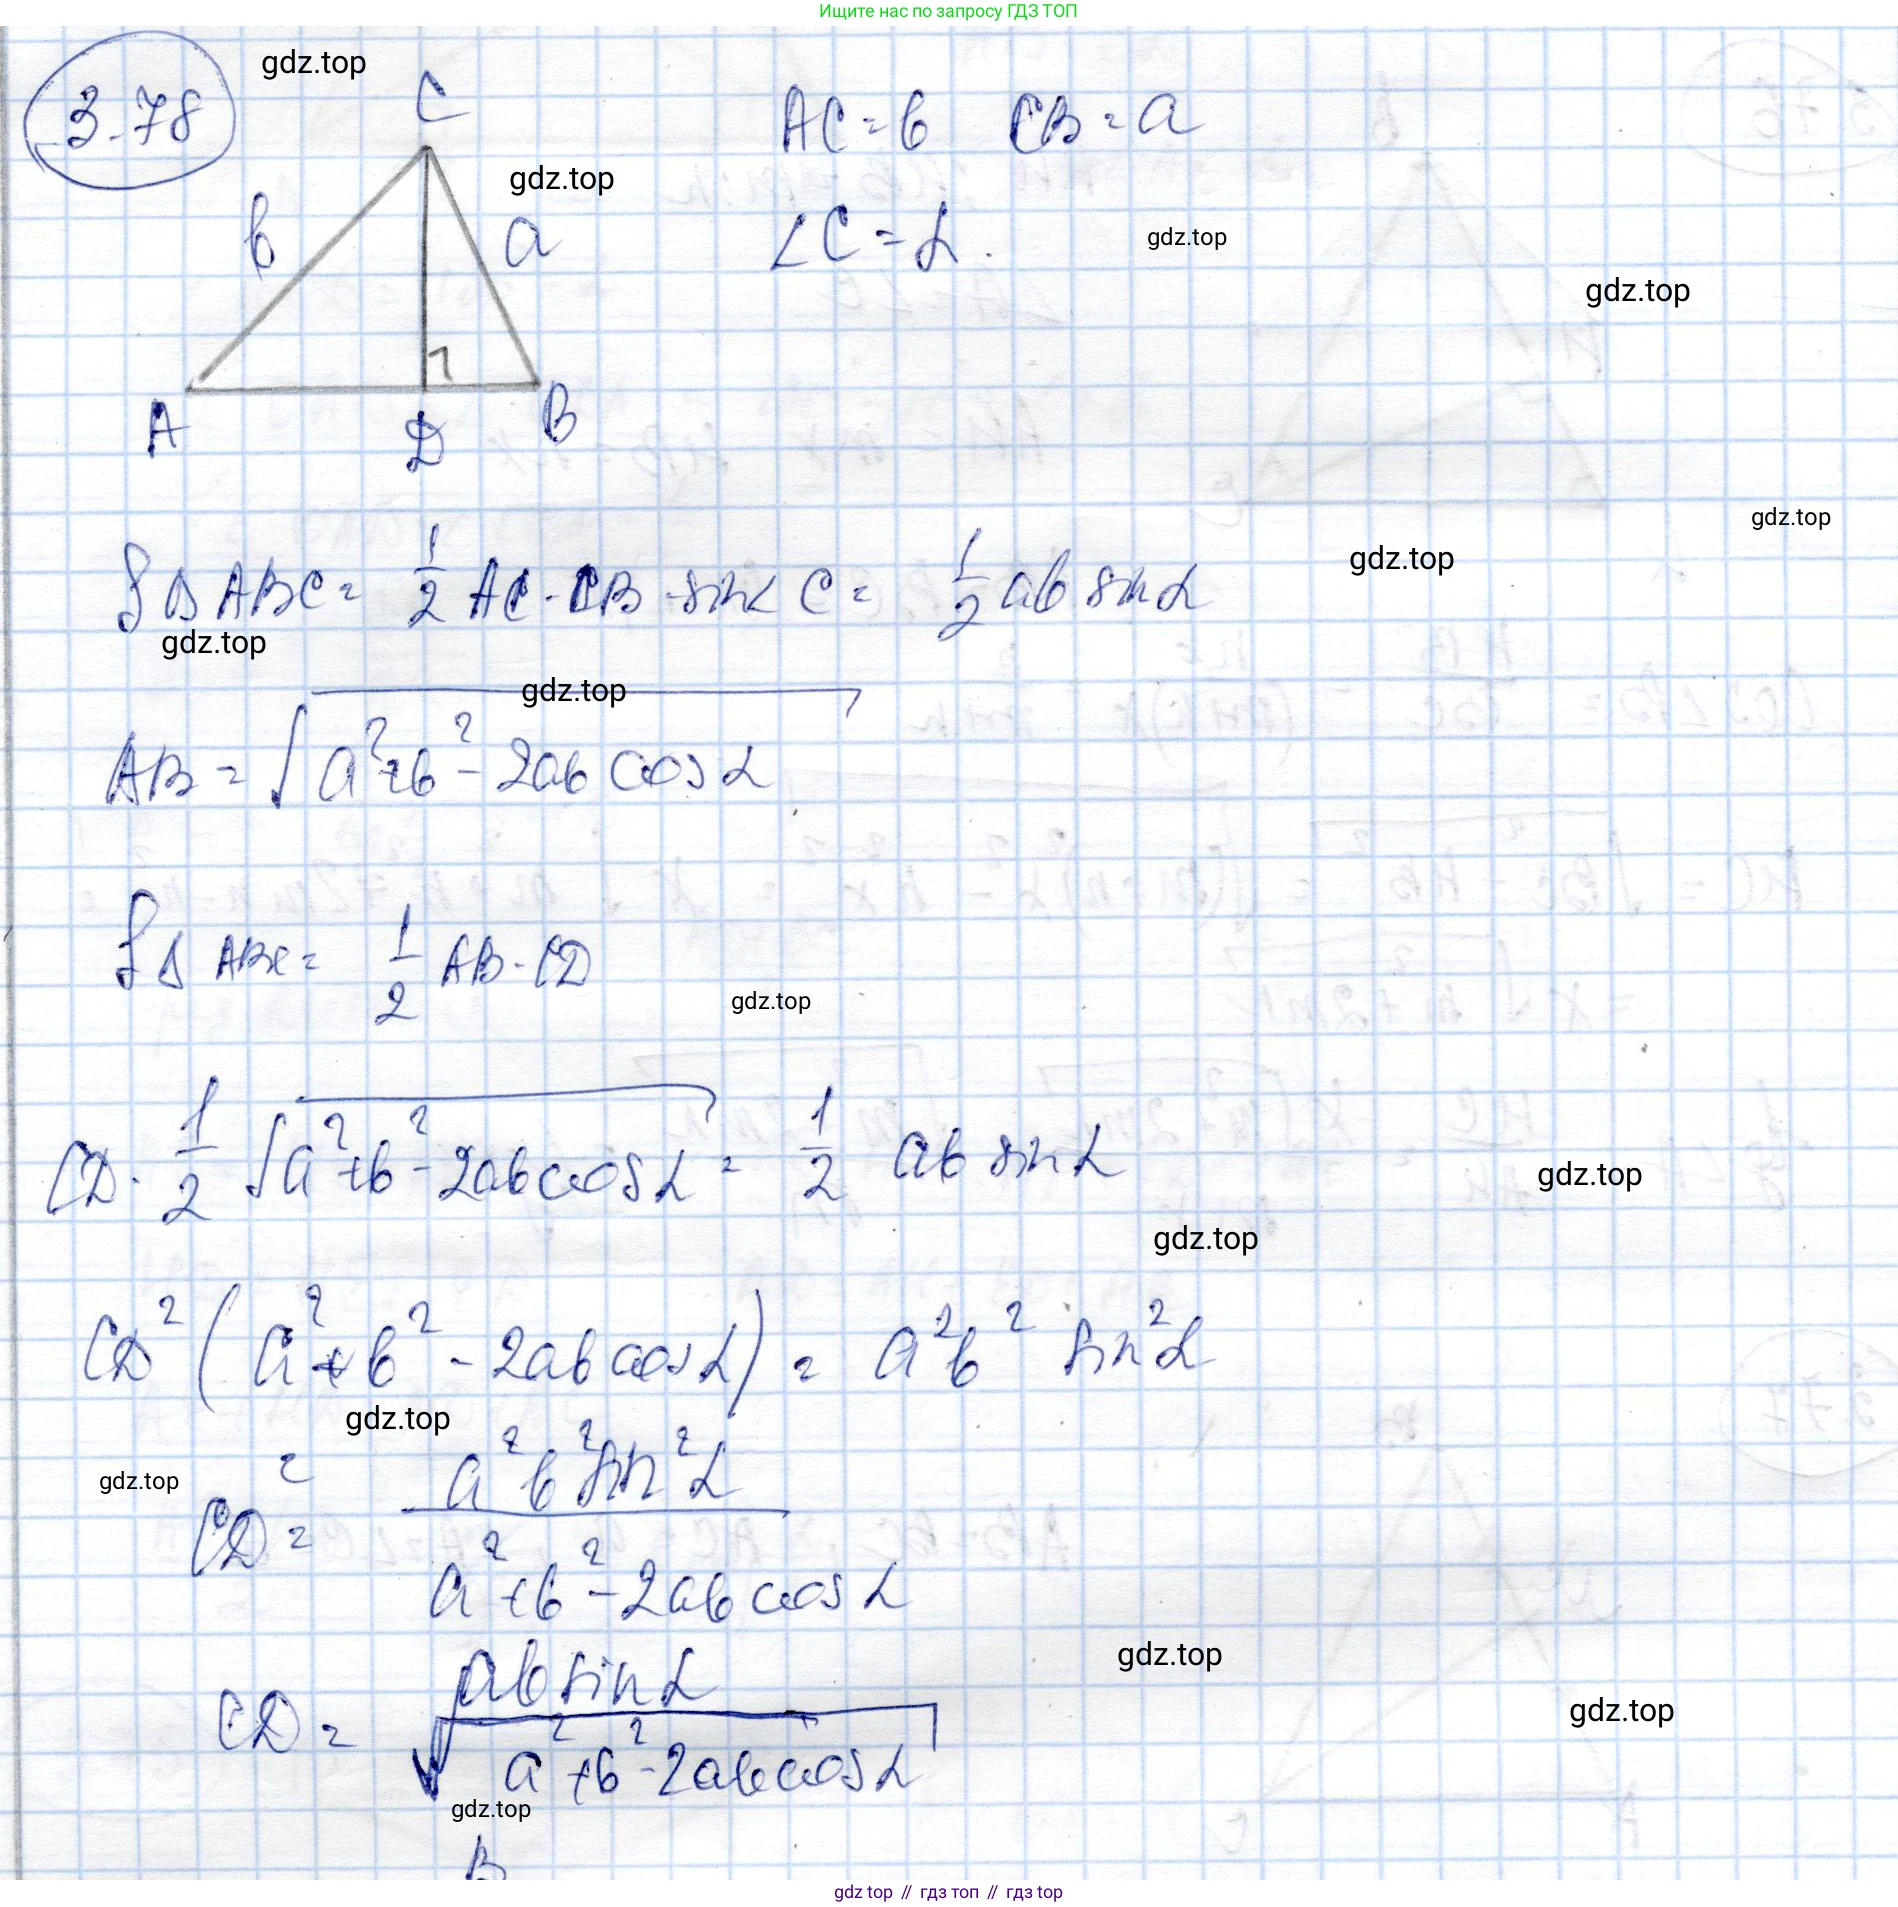 Ищите нас по запросу ГДЗ ТОП
3.78
gdz.top
C
AC = b CB = a
b
gdz.top
a
∠C = α.
gdz.top
gdz.top
A
D
B
gdz.top
gdz.top
S△ABC = 1/2 AC · CB · sin∠C = 1/2 ab sin α
gdz.top
gdz.top
AB = √(a² + b² - 2ab cos α)
S△ABC = 1/2 AB · CD
gdz.top
CD · 1/2 √(a² + b² - 2ab cos α) = 1/2 ab sin α
gdz.top
gdz.top
CD² (a² + b² - 2ab cos α) = a²b² sin²α
gdz.top
gdz.top
CD² = a²b² sin²α / a² + b² - 2ab cos α
gdz.top
gdz.top
CD = ab sin α / √(a² + b² - 2ab cos α)
gdz.top
B
gdz top // гдз топ // гдз top